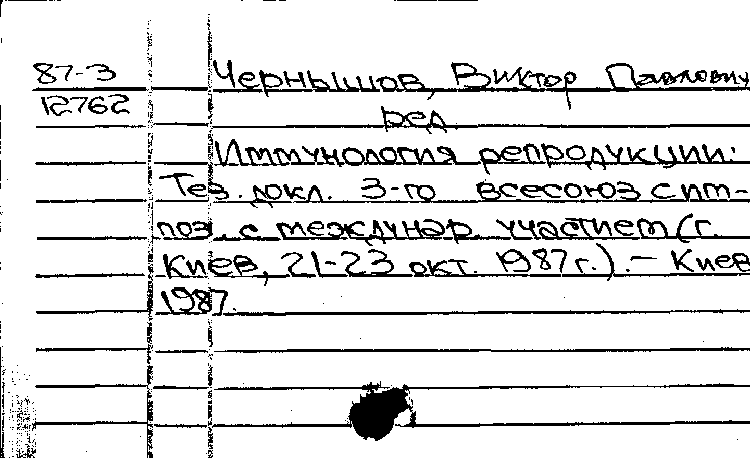 87-3 Чернышов, Виктор Павлович
12762 ред.
Иммунология репродукции:
Тез. докл. 3-го всесоюз симпоз. с междунар. участием (г.
Киев, 21-23 окт. 1987 г.). – Киев
1987.